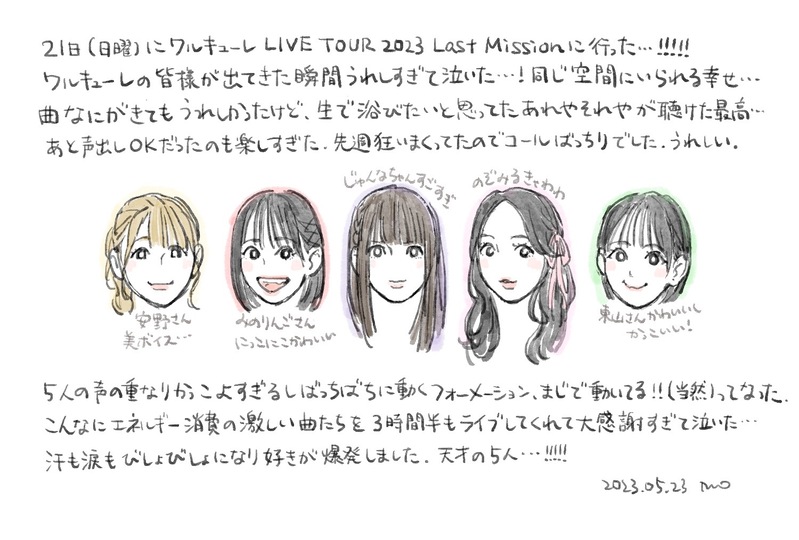 21日(日曜)にワルキューレ LIVE TOUR 2023 Last Missionに行った…!!!!!
ワルキューレの皆様が出てきた瞬間うれしすぎて泣いた…!同じ空間にいられる幸せ…
曲なにがきてもうれしかったけど、生で浴びたいと思ってたあれやそれやが聴けた最高…
あと声出しOKだったのも楽しすぎた.先週狂いまくってたのでコールばっちりでした.うれしい。
じゅんなちゃんすごすぎ
のぞみるきゃわわ
安野さん
美ボイズ…
みのりんごさん
にっこにこかわいい
東山さんかわいいし
かっこいい!
5人の声の重なりかっこよすぎるしばっちばちに動くフォーメーション、まじで動いてる!!(当然)ってなった.
こんなにエネルギー消費の激しい曲たちを3時間半もライブしてくれて大感謝すぎて泣いた…
汗も涙もびしょびしょになり好きが爆発しました.天才の5人…!!!!!
2023.05.23